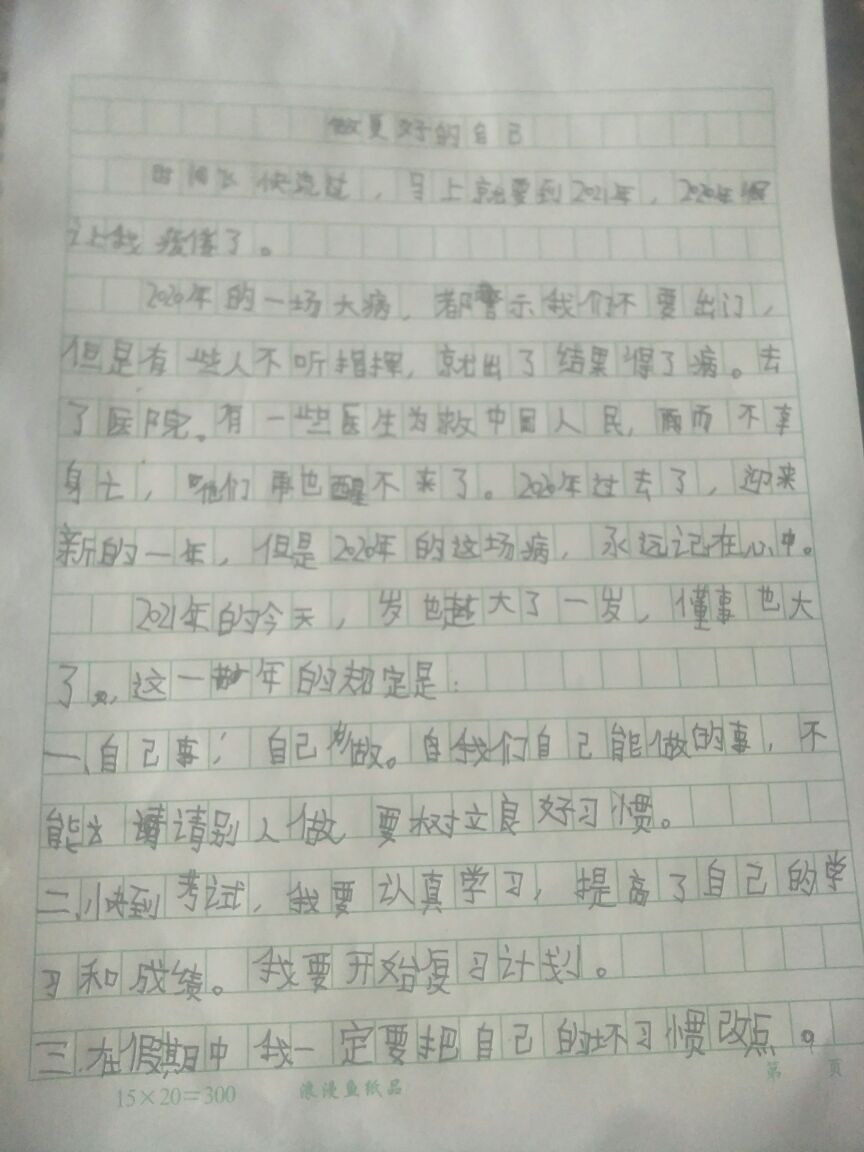 做更好的自己
时间飞快流过，马上就要到2021年，2020年
让我疲惫了。
2020年的一场大病，都警示我们不要出门，
但是有些人不听指挥，就出了结果得了病。去
了医院。有一些医生为救中国人民，而不幸
身亡，他们再也醒不来了。2020年过去了，迎来
新的一年，但是2020年的这场病，永远记在心中。
2021年的今天，岁也越大了一岁，懂事也大
了。这一年的规定是：
一、自己事；自己做。自我们自己能做的事，不
能去请别人做 要树立良好习惯。
二、快到考试，我要认真学习，提高了自己的学
习和成绩。我要开始复习计划。
三、在假期中我一定要把自己的坏习惯改点。
15×20=300 浪漫鱼纸品 第 页